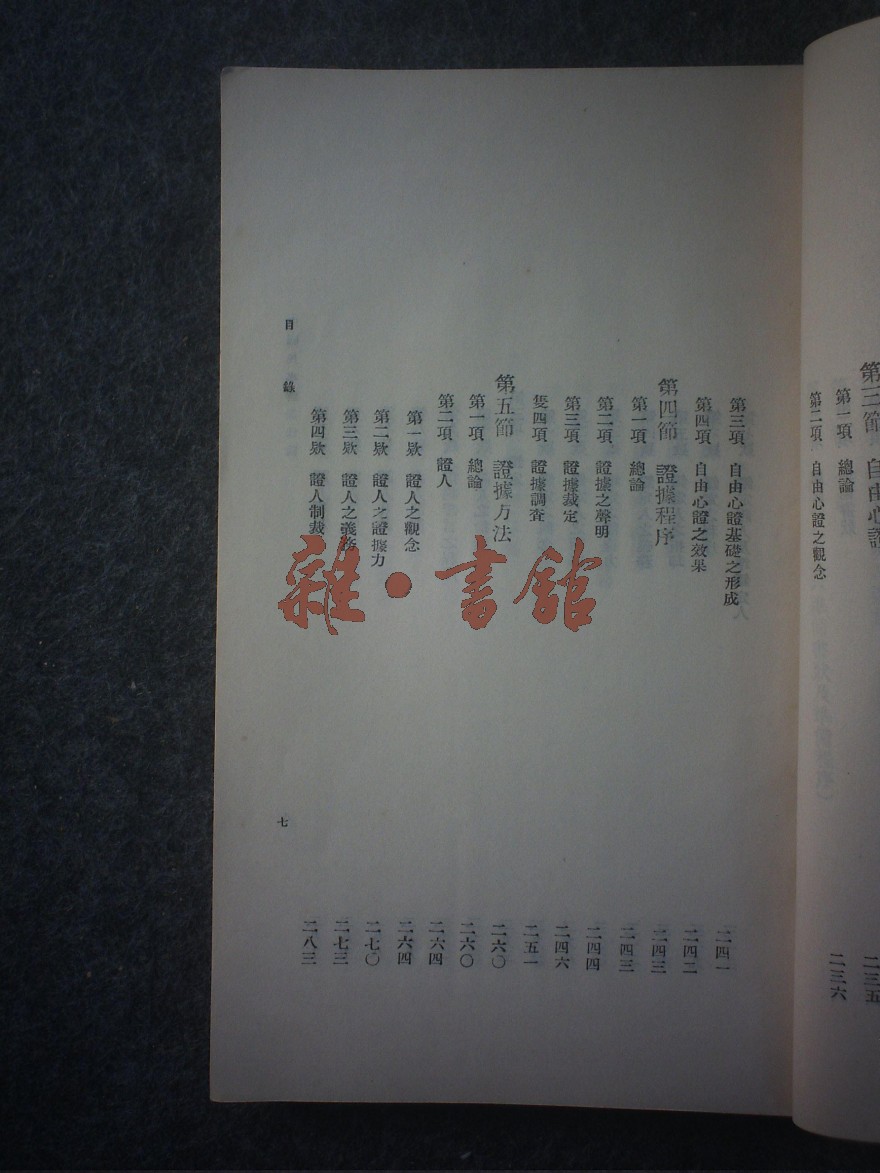 第三節 自由心證 二三五
第一項 總論
第二項 自由心證之觀念 二三六
第三項 自由心證基礎之形成 二四一
第四項 自由心證之效果 二四二
第四節 證據程序 二四三
第一項 總論 二四三
第二項 證據之聲明 二四四
第三項 證據裁定 二四六
隻四項 證據調查 二五一
第五節 證據方法 二六〇
第一項 總論 二六〇
第二項 證人 二六四
第一欵 證人之觀念 二六四
第二欵 證人之證據力 二七〇
第三欵 證人之義務 二七三
第四欵 證人制裁 二八三
目錄 七
雜·書館